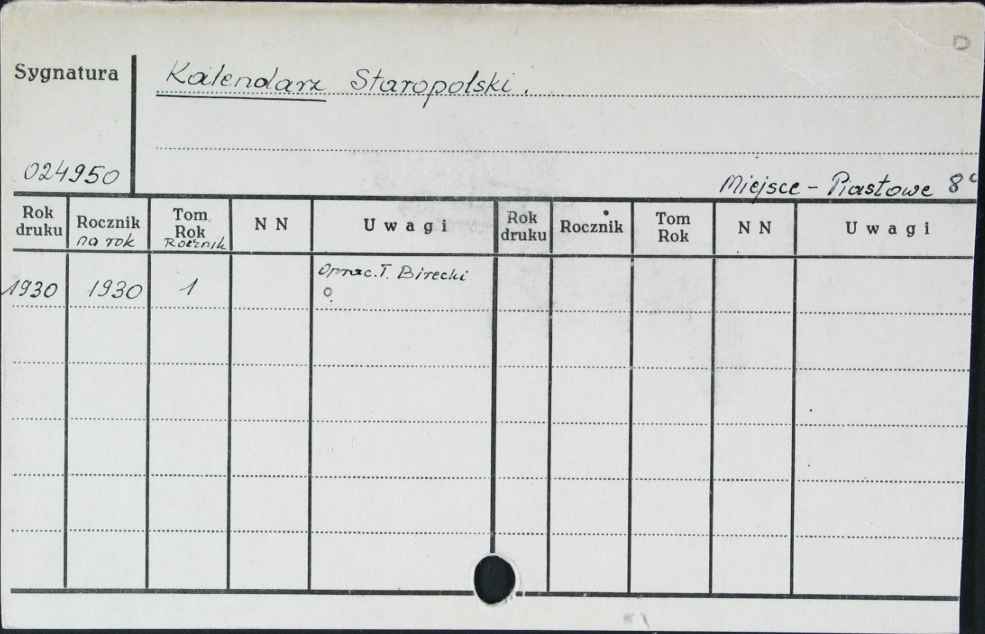 D
Sygnatura
Kalendarz Staropolski.
024950
Miejsce - Piastowe 8°
Rok druku Rocznik na rok Tom Rok Rocznik N N Uwagi Rok druku Rocznik Tom Rok N N Uwagi
1930 1930 1 Oprac. T. Birecki